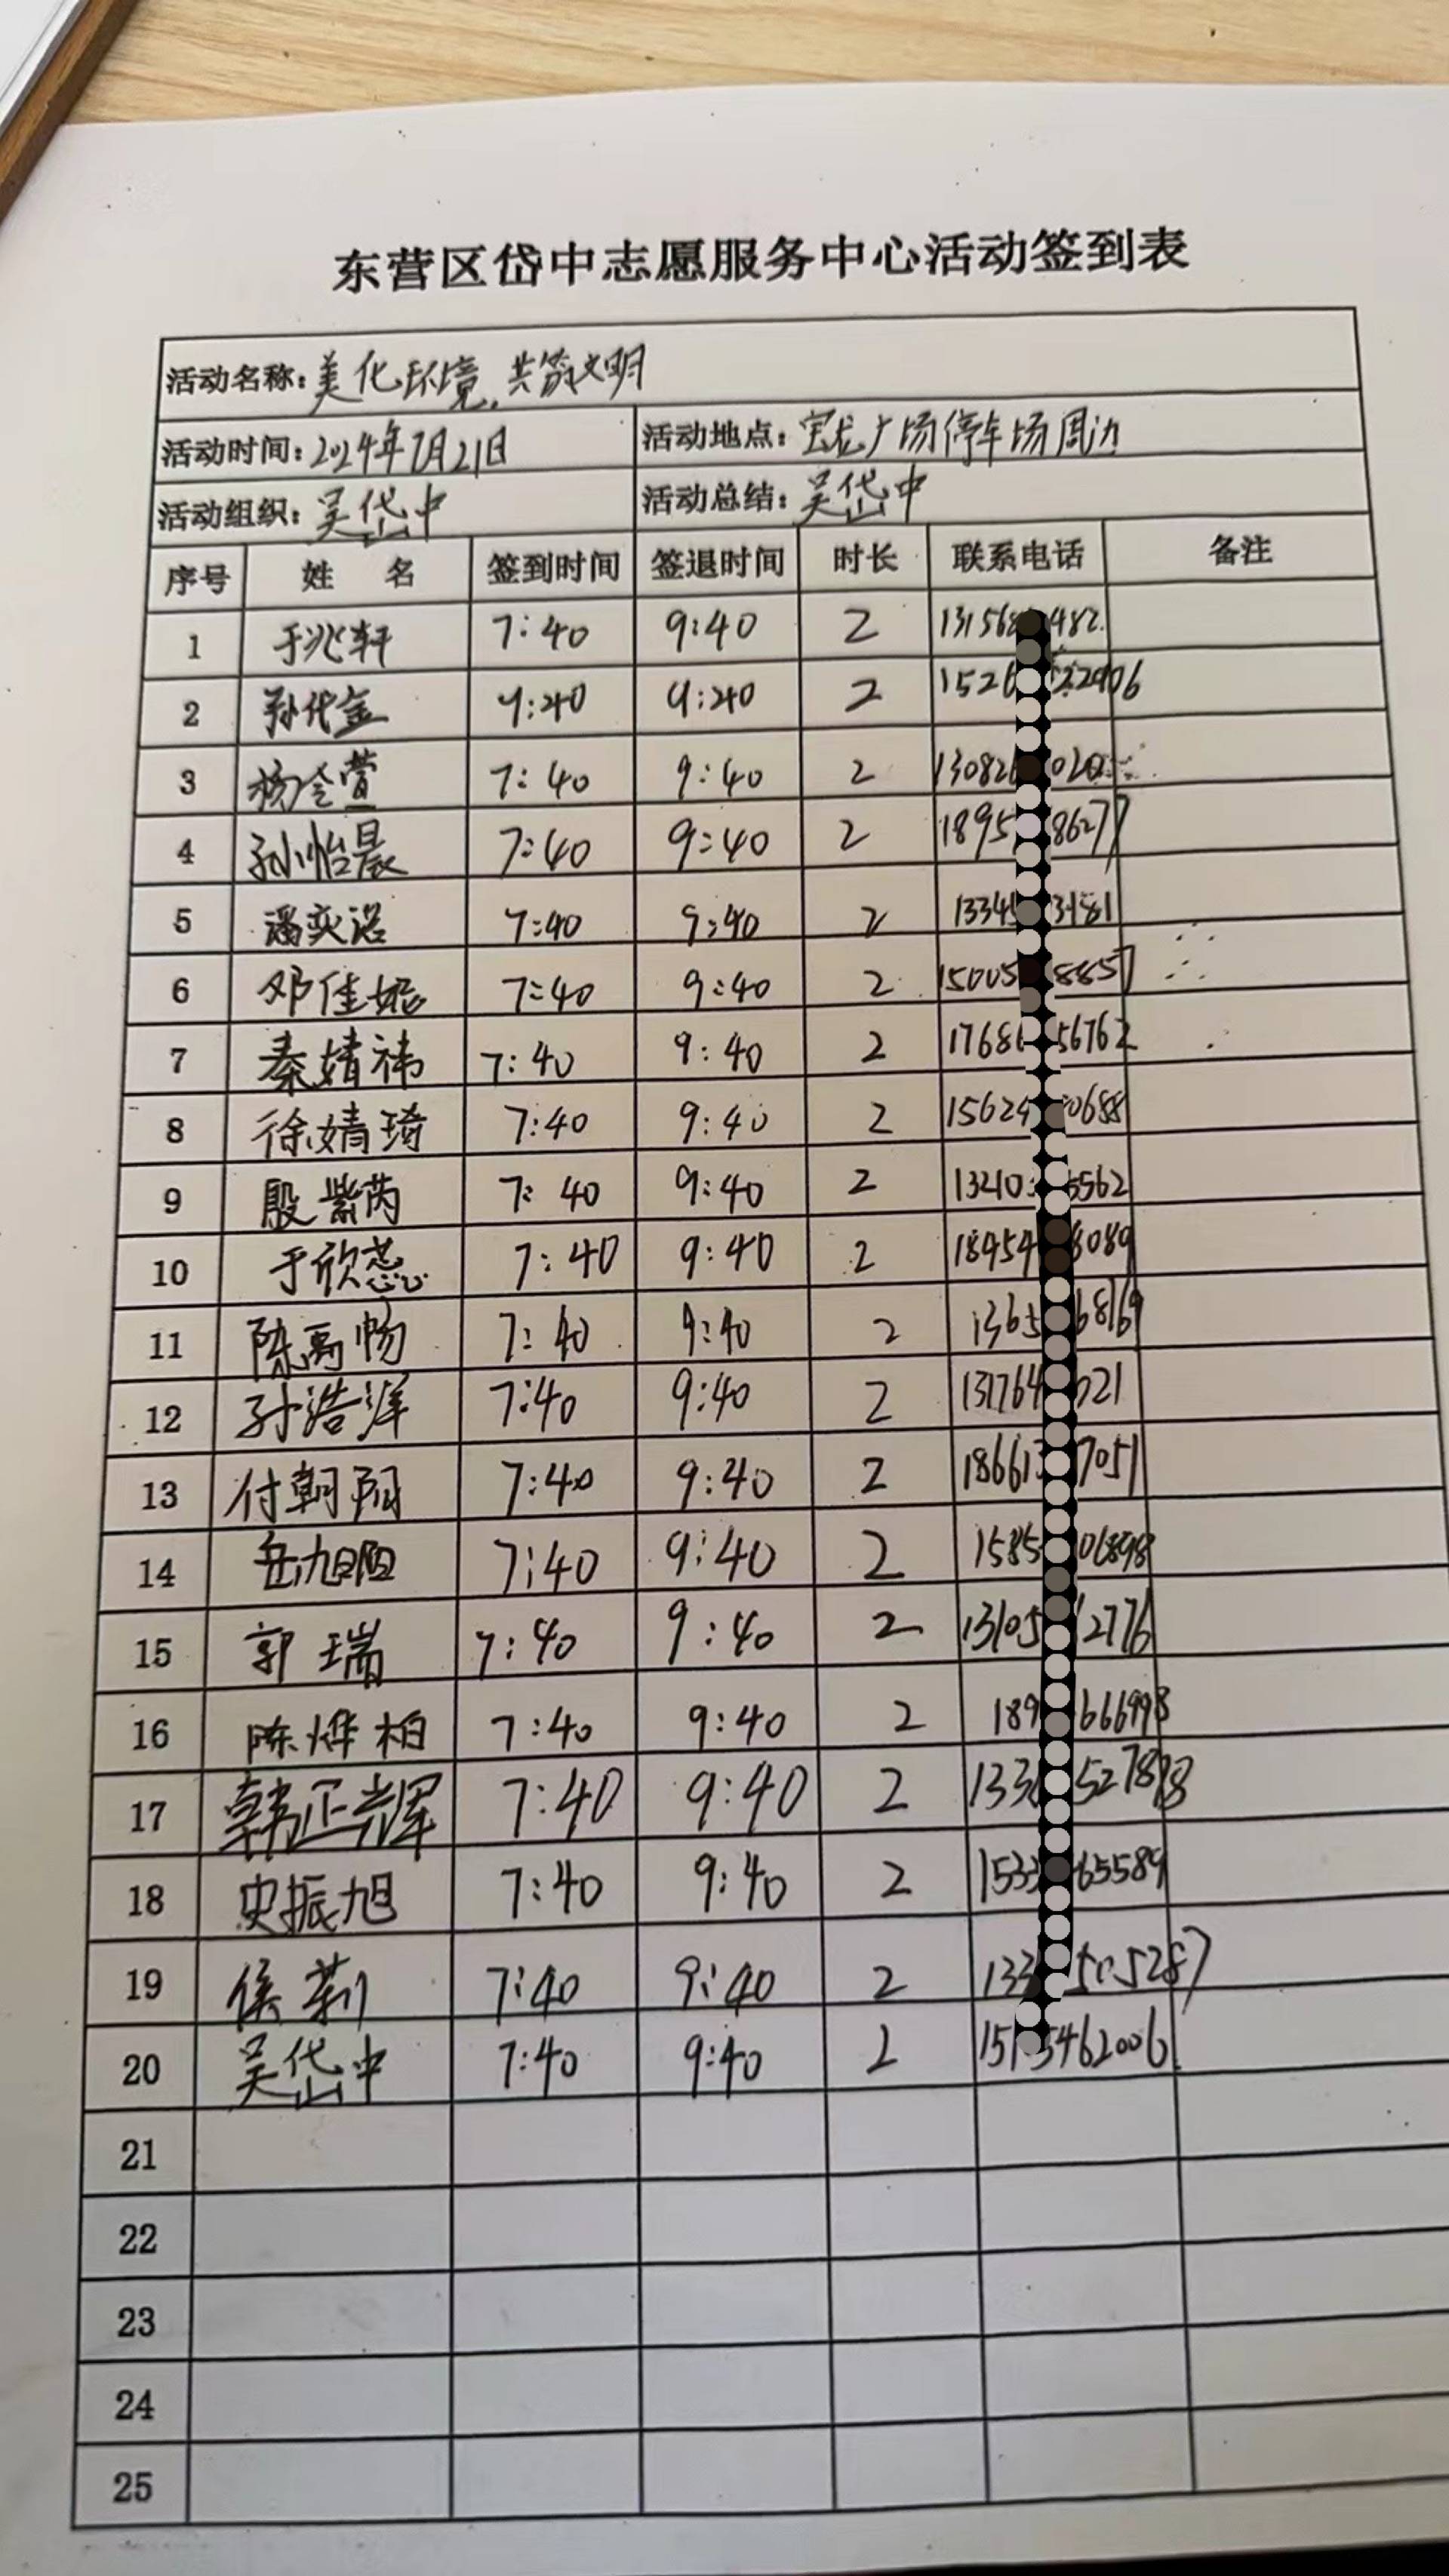 东营区岱中志愿服务中心活动签到表
活动名称：美化环境，共筑文明
活动时间：2024年7月21日 活动地点：宝龙广场停车场周边
活动组织：吴岱中 活动总结：吴岱中
序号 姓 名 签到时间 签退时间 时长 联系电话 备注
1 于兆轩 7:40 9:40 2 13156 482
2 孙代金 7:40 9:40 2 1526 22906
3 杨令萱 7:40 9:40 2 13082 020
4 孙怡晨 7:40 9:40 2 1895 86277
5 潘奕诺 7:40 9:40 2 1334 3181
6 邓佳妮 7:40 9:40 2 15005 8857
7 秦婧祎 7:40 9:40 2 1768 56762
8 徐婧琦 7:40 9:40 2 15624 0688
9 殷紫芮 7:40 9:40 2 13210 5562
10 于欣蕊 7:40 9:40 2 18454 8089
11 陈禹畅 7:40 9:40 2 1365 68169
12 孙浩洋 7:40 9:40 2 131764 521
13 付朝阳 7:40 9:40 2 18661 7051
14 岳旭阳 7:40 9:40 2 1585 06898
15 郭瑞 7:40 9:40 2 13105 2776
16 陈烨柏 7:40 9:40 2 189 666998
17 韩正辉 7:40 9:40 2 133 527898
18 史振旭 7:40 9:40 2 1533 65589
19 侯莉 7:40 9:40 2 133 5287
20 吴岱中 7:40 9:40 2 151 5462006
21
22
23
24
25